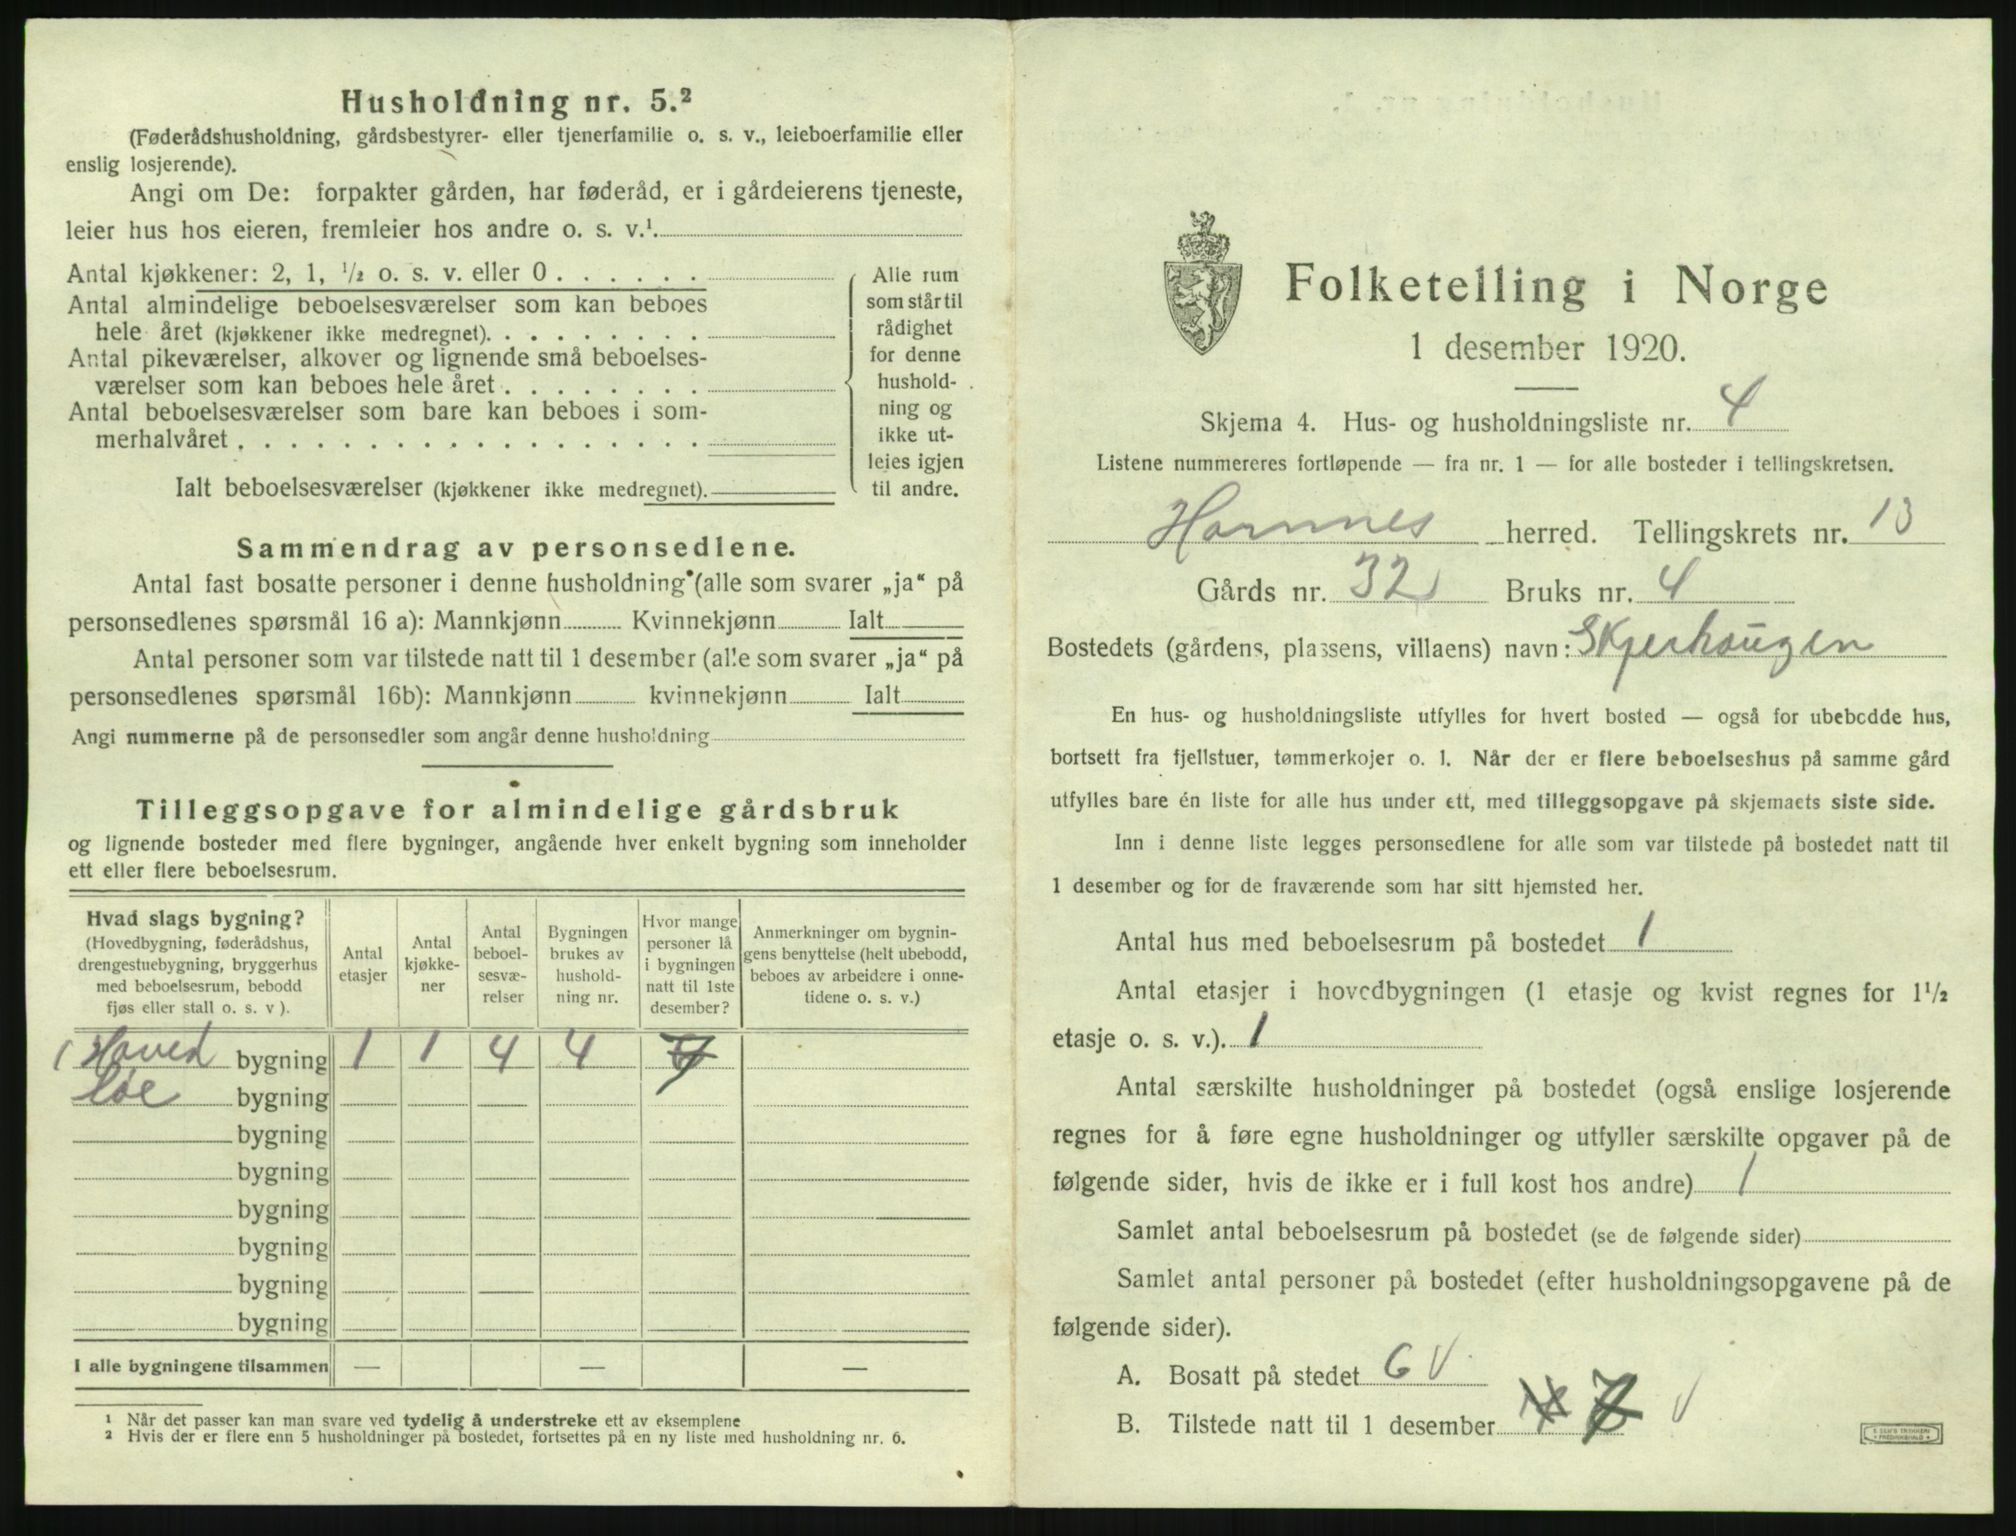 Husholdning nr. 5.²
(Føderådshusholdning, gårdsbestyrer- eller tjenerfamilie o. s. v., leieboerfamilie eller
enslig losjerende).
Angi om De: forpakter gården, har føderåd, er i gårdeierens tjeneste,
leier hus hos eieren, fremleier hos andre o. s. v.¹.
Antal kjøkkener: 2, 1, ¹/₂ o. s. v. eller 0
Antal almindelige beboelsesværelser som kan beboes
hele året (kjøkkener ikke medregnet).
Antal pikeværelser, alkover og lignende små beboelses-
værelser som kan beboes hele året
Antal beboelsesværelser som bare kan beboes i som-
merhalvåret
Ialt beboelsesværelser (kjøkkener ikke medregnet).
Alle rum
som står til
rådighet
for denne
hushold-
ning og
ikke ut-
leies igjen
til andre.
Sammendrag av personsedlene.
Antal fast bosatte personer i denne husholdning (alle som svarer „ja“ på
personsedlenes spørsmål 16 a): Mannkjønn Kvinnekjønn Ialt
Antal personer som var tilstede natt til 1 desember (alle som svarer „ja“ på
personsedlenes spørsmål 16b): Mannkjønn kvinnekjønn Ialt
Angi nummerne på de personsedler som angår denne husholdning
Tilleggsopgave for almindelige gårdsbruk
og lignende bosteder med flere bygninger, angående hver enkelt bygning som inneholder
ett eller flere beboelsesrum.
Hvad slags bygning?
(Hovedbygning, føderådshus,
drengestuebygning, bryggerhus
med beboelsesrum, bebodd
fjøs eller stall o. s. v ).
Antal
etasjer
Antal
kjøkke-
ner
Antal
beboel-
sesvæ-
relser
Bygningen
brukes av
hushold-
ning nr.
Hvor mange
personer lå
i bygningen
natt til 1ste
desember?
Anmerkninger om bygnin-
gens benyttelse (helt ubebodd,
beboes av arbeidere i onne-
tidene o. s. v.)
1 Hoved bygning 1 1 4 4 7
Loe bygning
bygning
bygning
bygning
bygning
bygning
bygning
I alle bygningene tilsammen — — —
¹ Når det passer kan man svare ved tydelig å understreke ett av eksemplene
² Hvis der er flere enn 5 husholdninger på bostedet, fortsettes på en ny liste med husholdning nr. 6.
Folketelling i Norge
1 desember 1920.
Skjema 4. Hus- og husholdningsliste nr. 4
Listene nummereres fortløpende — fra nr. 1 — for alle bosteder i tellingskretsen.
Hornnes herred. Tellingskrets nr. 13
Gårds nr. 32 Bruks nr. 4
Bostedets (gårdens, plassens, villaens) navn: Skjerhaugen
En hus- og husholdningsliste utfylles for hvert bosted — også for ubebodde hus,
bortsett fra fjellstuer, tømmerkojer o. l. Når der er flere beboelseshus på samme gård
utfylles bare én liste for alle hus under ett, med tilleggsopgave på skjemaets siste side.
Inn i denne liste legges personsedlene for alle som var tilstede på bostedet natt til
1 desember og for de fraværende som har sitt hjemsted her.
Antal hus med beboelsesrum på bostedet 1
Antal etasjer i hovedbygningen (1 etasje og kvist regnes for 1¹/₂
etasje o. s. v.). 1
Antal særskilte husholdninger på bostedet (også enslige losjerende
regnes for å føre egne husholdninger og utfyller særskilte opgaver på de
følgende sider, hvis de ikke er i full kost hos andre) 1
Samlet antal beboelsesrum på bostedet (se de følgende sider)
Samlet antal personer på bostedet (efter husholdningsopgavene på de
følgende sider).
A. Bosatt på stedet 6 V
B. Tilstede natt til 1 desember V